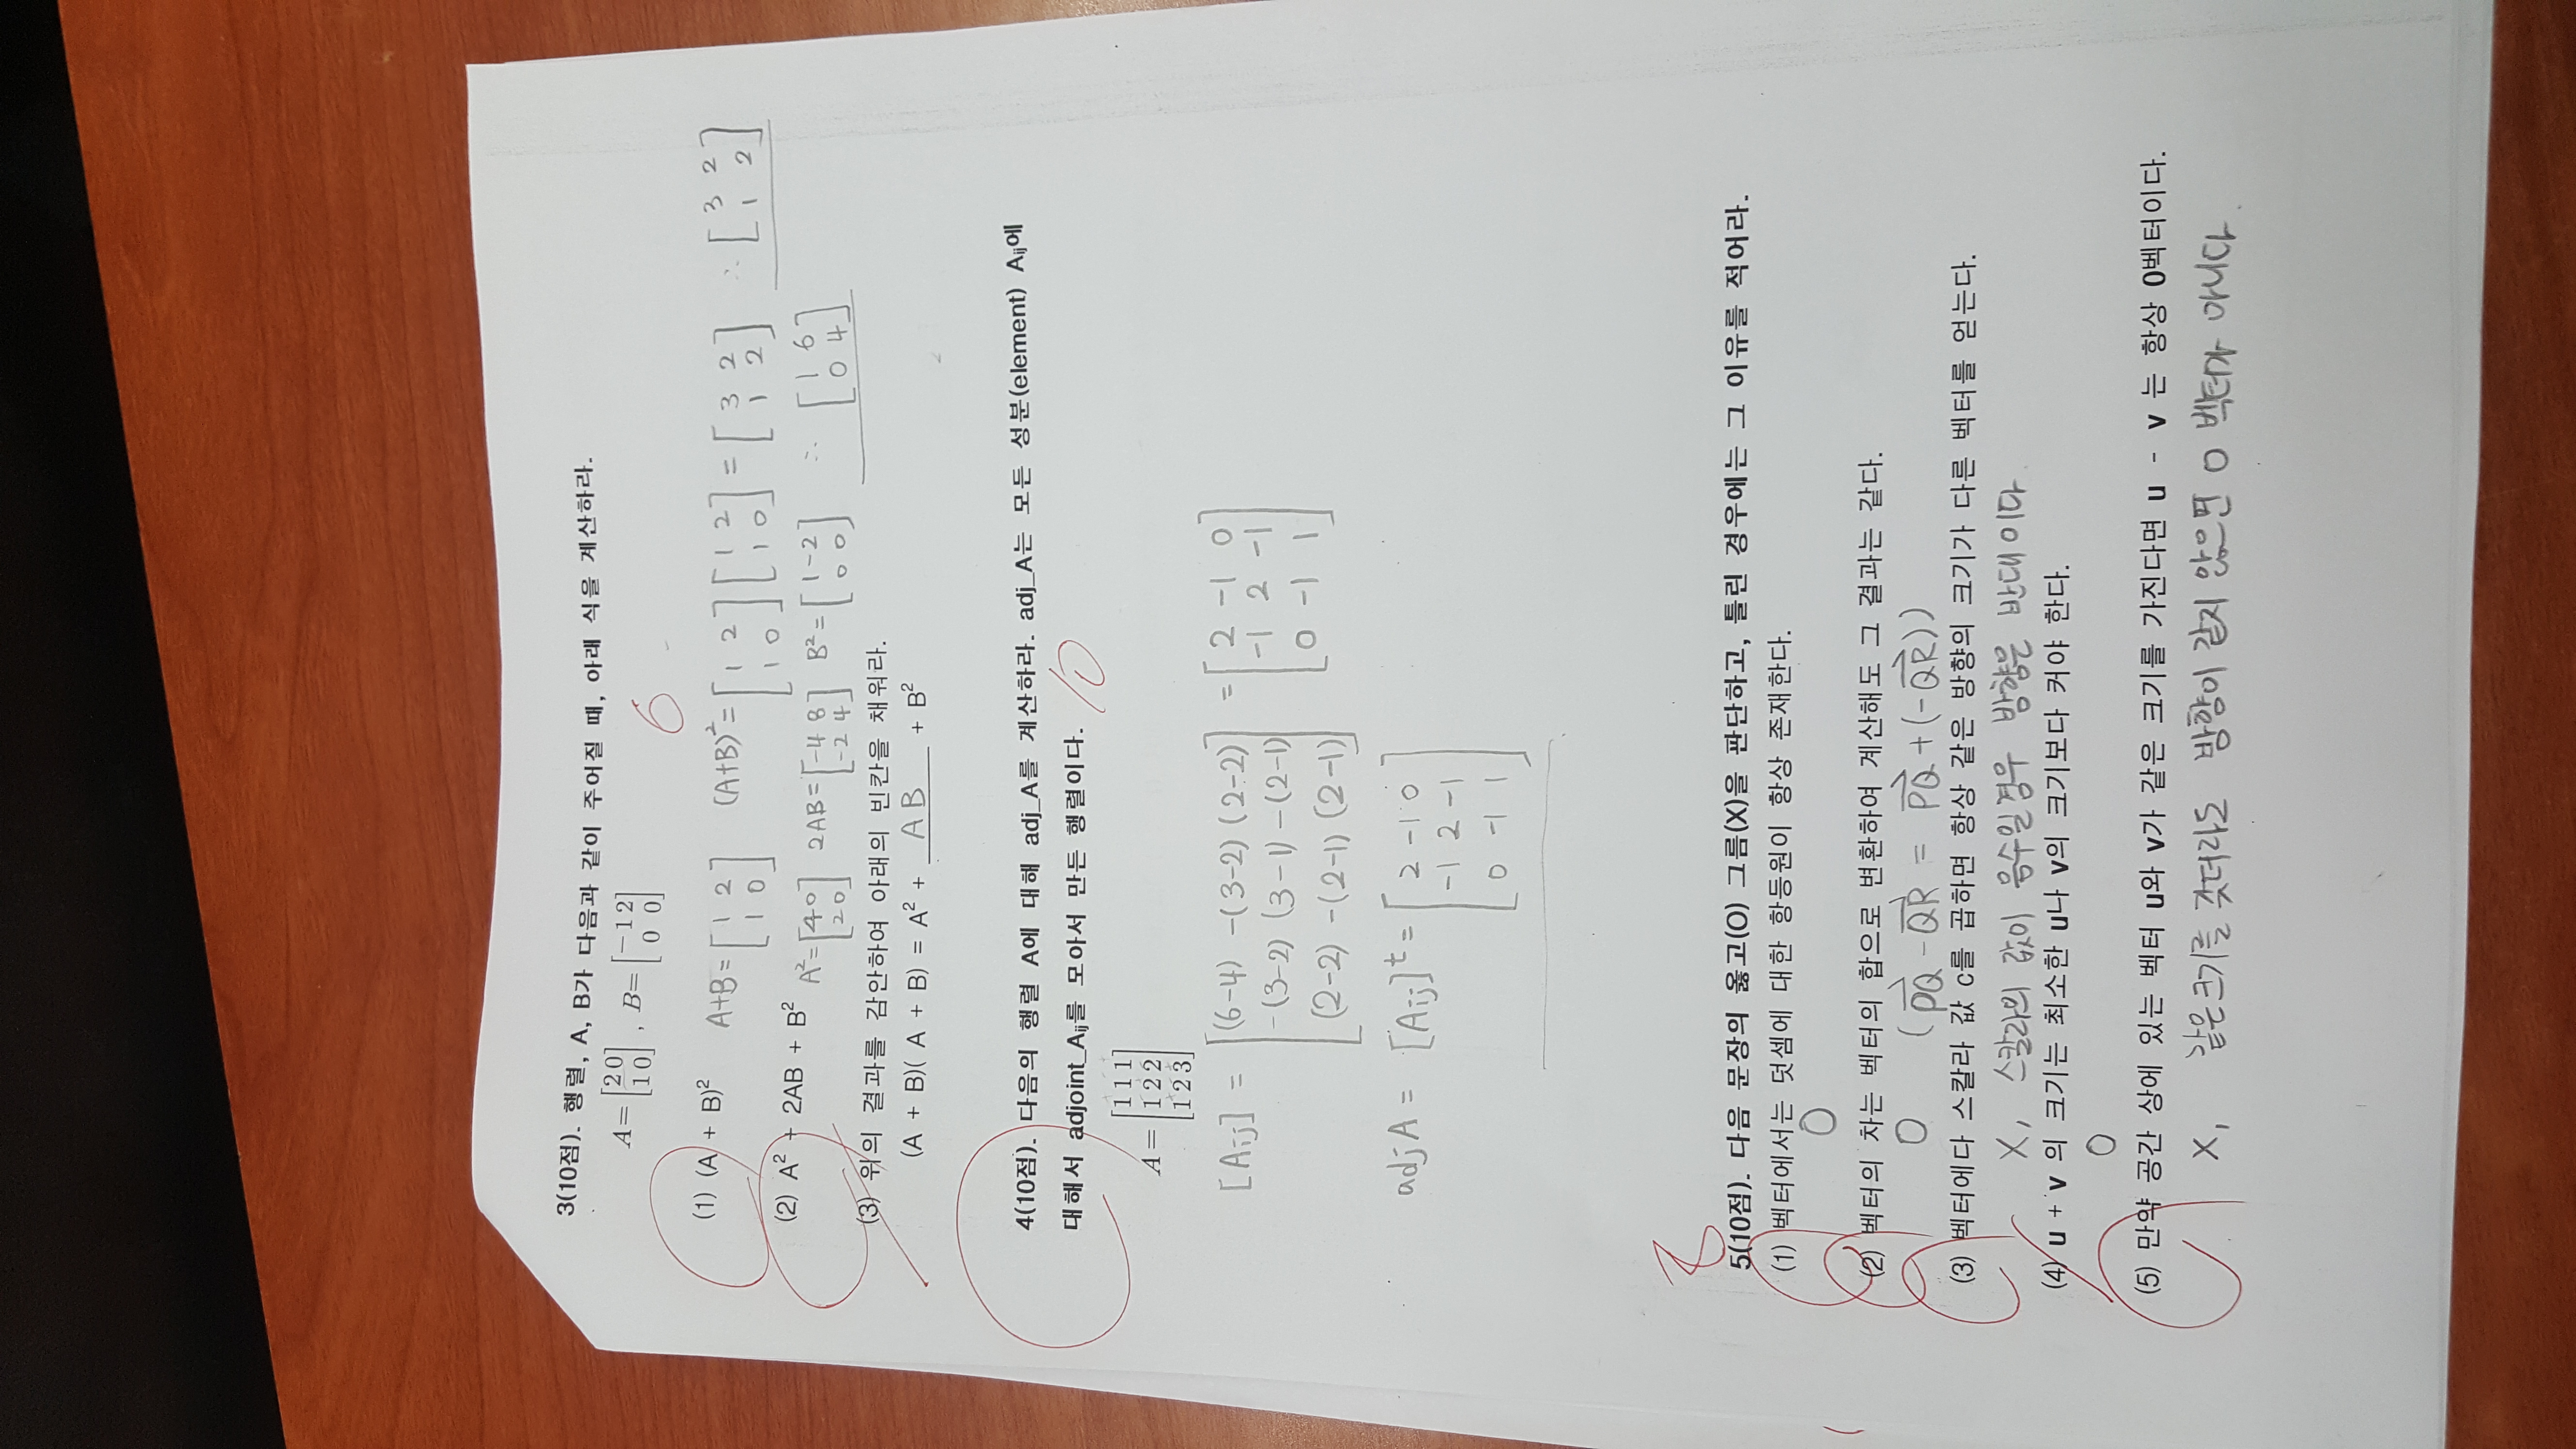 3(10점). 행렬, A, B가 다음과 같이 주어질 때, 아래 식을 계산하라.
A=[2 0
1 0], B=[-1 2
0 0]
6
(1) (A + B)² A+B=[1 2
1 0] (A+B)²=[1 2
1 0][1 2
1 0]=[3 2
1 2] ∴ [3 2
1 2]
(2) A² + 2AB + B² A²=[4 0
2 0] 2AB=[-4 8
-2 4] B²=[1 -2
0 0] ∴ [1 6
0 4]
(3) 위의 결과를 감안하여 아래의 빈칸을 채워라.
(A + B)( A + B) = A² + AB + B²
4(10점). 다음의 행렬 A에 대해 adj_A를 계산하라. adj_A는 모든 성분(element) Aij에
대해서 adjoint_Aij를 모아서 만든 행렬이다. 10
A=[1 1 1
1 2 2
1 2 3]
[Aij] = [(6-4) -(3-2) (2-2)
-(3-2) (3-1) -(2-1)
(2-2) -(2-1) (2-1)] = [2 -1 0
-1 2 -1
0 -1 1]
adjA = [Aij]ᵗ = [2 -1 0
-1 2 -1
0 -1 1]
8
5(10점). 다음 문장의 옳고(O) 그름(X)을 판단하고, 틀린 경우에는 그 이유를 적어라.
(1) 벡터에서는 덧셈에 대한 항등원이 항상 존재한다.
O
(2) 벡터의 차는 벡터의 합으로 변환하여 계산해도 그 결과는 같다.
O (PQ - QR = PQ + (-QR))
(3) 벡터에다 스칼라 값 c를 곱하면 항상 같은 방향의 크기가 다른 벡터를 얻는다.
X, 스칼라의 값이 음수일 경우 방향은 반대이다
(4) u + v 의 크기는 최소한 u나 v의 크기보다 커야 한다.
O
(5) 만약 공간 상에 있는 벡터 u와 v가 같은 크기를 가진다면 u - v 는 항상 0벡터이다.
X, 같은 크기를 갖더라도 방향이 같지 않으면 0 벡터가 아니다.